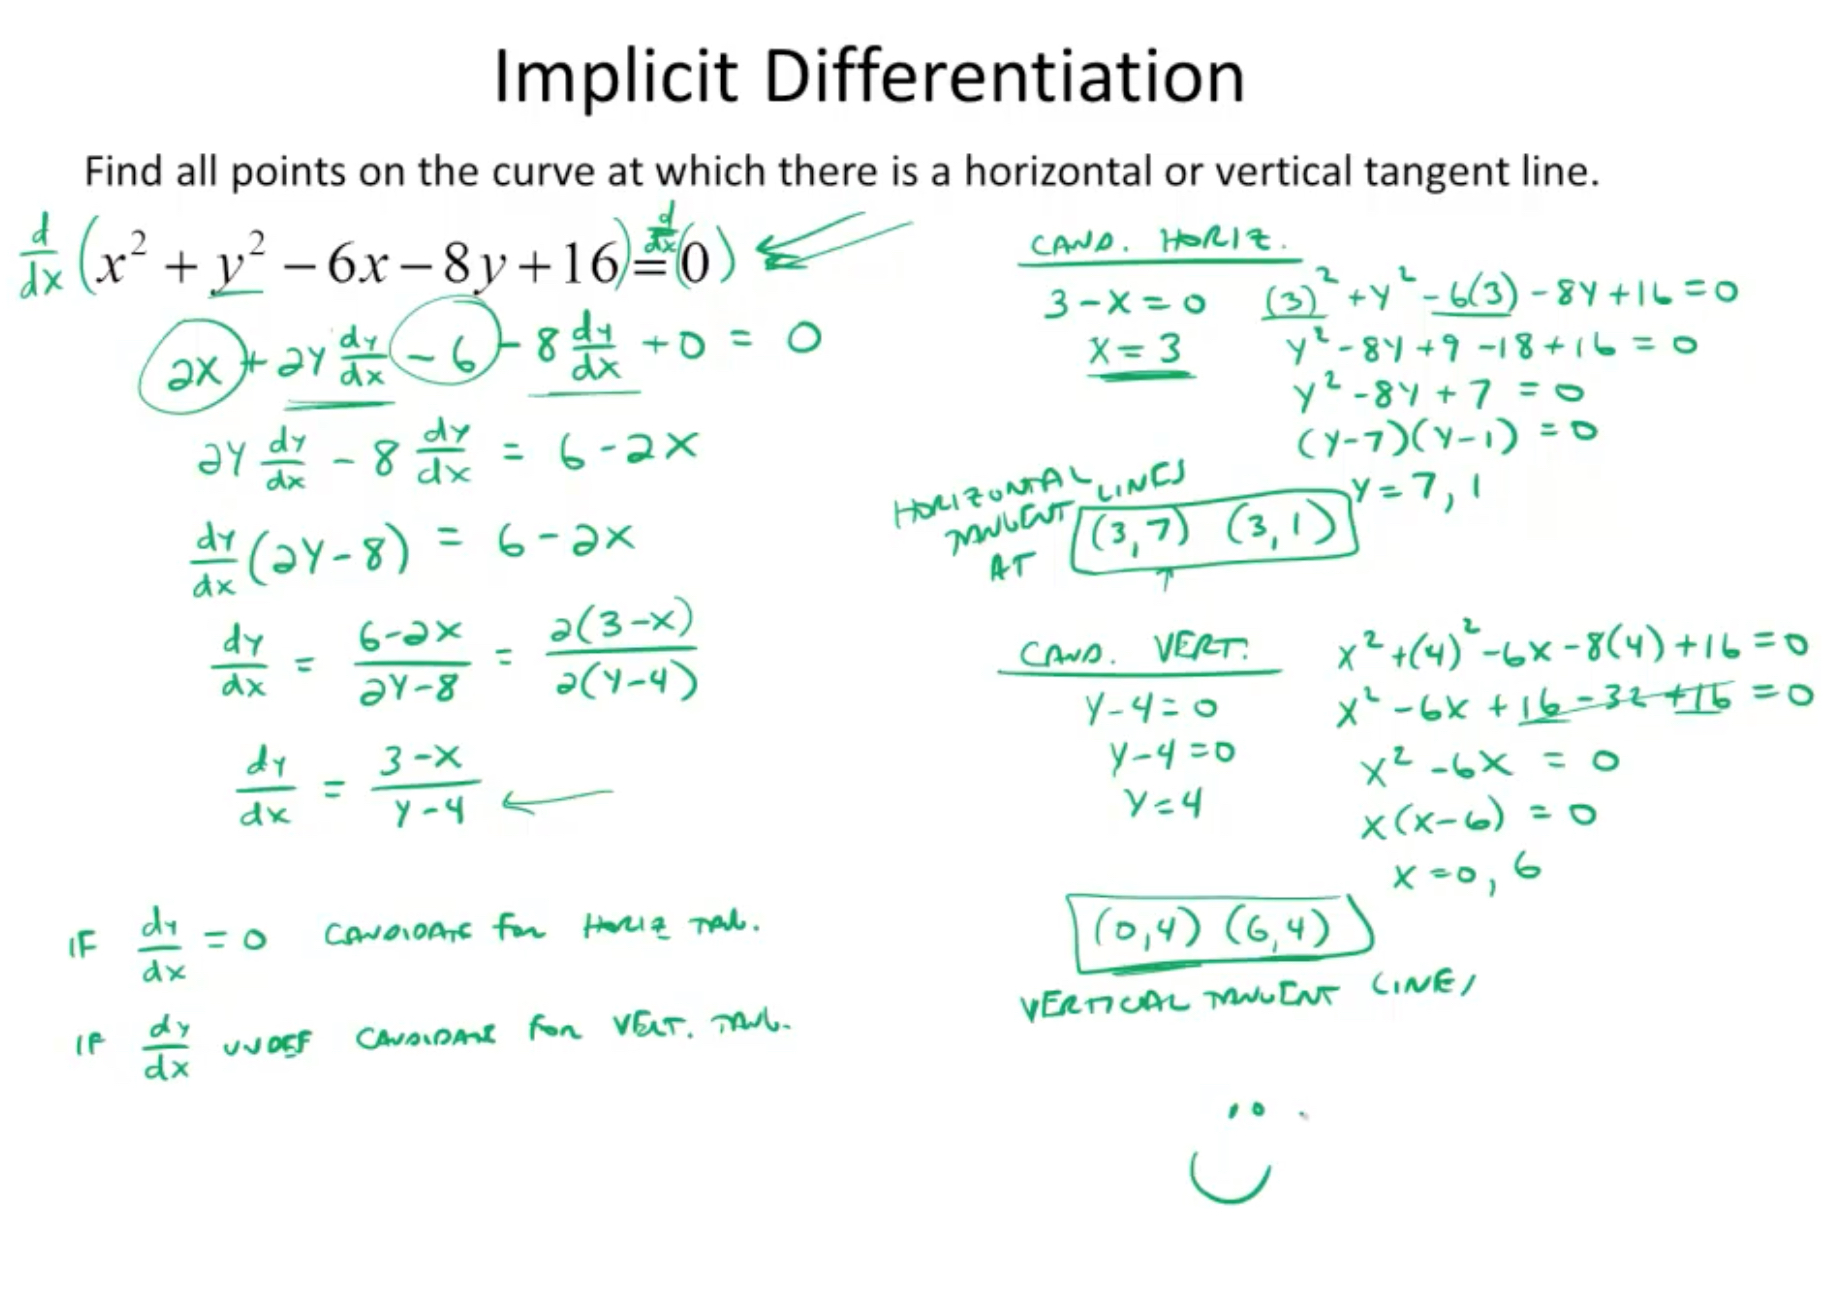 Implicit Differentiation
Find all points on the curve at which there is a horizontal or vertical tangent line.
d/dx (x² + y² − 6x − 8y + 16) = d/dx (0)
2x + 2y dy/dx − 6 − 8 dy/dx + 0 = 0
2y dy/dx − 8 dy/dx = 6 − 2x
dy/dx (2y − 8) = 6 − 2x
dy/dx = (6−2x)/(2y−8) = 2(3−x)/2(y−4)
dy/dx = (3−x)/(y−4)
IF dy/dx = 0 CANDIDATE FOR HORIZ TAN.
IF dy/dx UNDEF CANDIDATE FOR VERT. TANG.
CAND. HORIZ.
3 − x = 0
x = 3
(3)² + y² − 6(3) − 8y + 16 = 0
y² − 8y + 9 − 18 + 16 = 0
y² − 8y + 7 = 0
(y−7)(y−1) = 0
y = 7, 1
HORIZONTAL
TANGENT LINES
AT
(3,7) (3,1)
CAND. VERT.
y−4 = 0
y−4 = 0
y = 4
x² + (4)² − 6x − 8(4) + 16 = 0
x² − 6x + 16 − 32 + 16 = 0
x² − 6x = 0
x(x−6) = 0
x = 0, 6
(0,4) (6,4)
VERTICAL TANGENT LINES